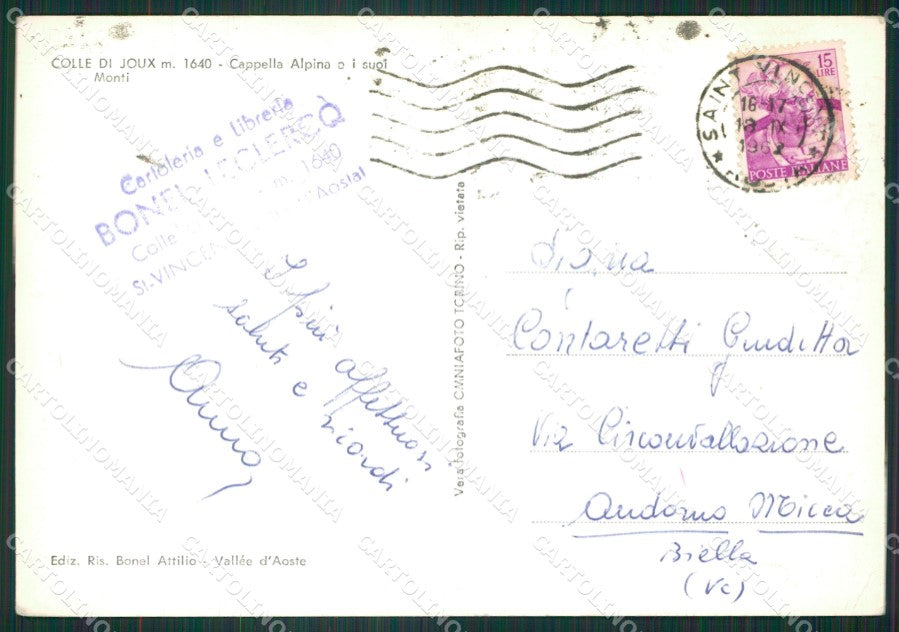 COLLE DI JOUX m. 1640 - Cappella Alpina e i suoi
Monti
Cartoleria e Libreria
BONEL LECLERCQ
Colle m. 1640
St. VINCENT Aosta)
I più affettuosi
saluti e ricordi
Anna
Ediz. Ris. Bonel Attilio - Vallée d'Aoste
Vera fotografia OMNIAFOTO TORINO - Rip. vietata
SAINT VINCENT
16-17
18 IX
196
15
LIRE
POSTE ITALIANE
Contaretti Giuditta
Via Circonvallazione
Andorno Micca
Biella
(Vc)
CARTOLINOMANIA